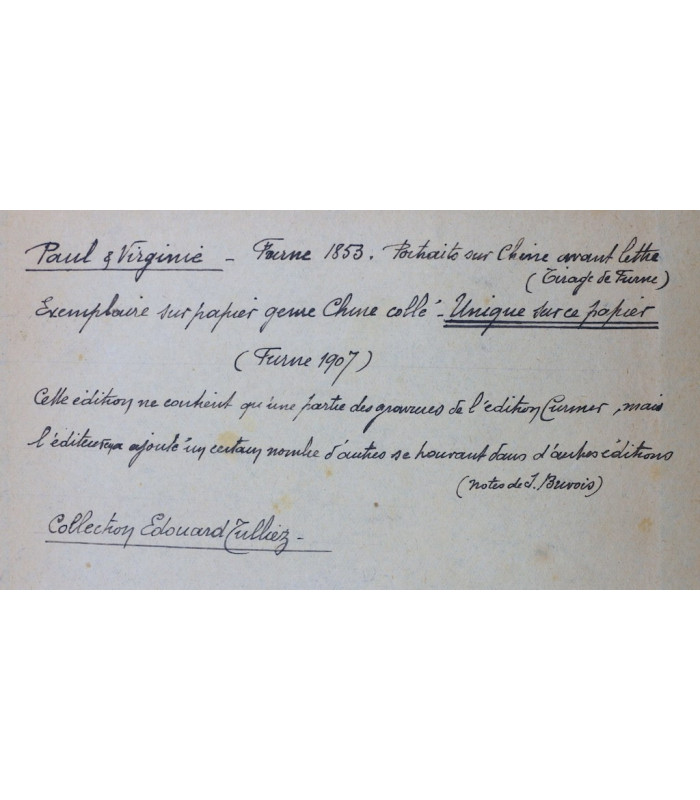 Paul & Virginie - Furne 1853. Portraits sur Chine avant lettre
(Tirage de Furne)
Exemplaire sur papier genre Chine collé - Unique sur ce papier
(Furne 1907)
Cette édition ne contient qu'une partie des gravures de l'édition Curmer, mais
l'éditeur y a ajouté un certain nombre d'autres se trouvant dans d'autres éditions
(notes de J. Brivois)
Collection Edouard Tulliez -